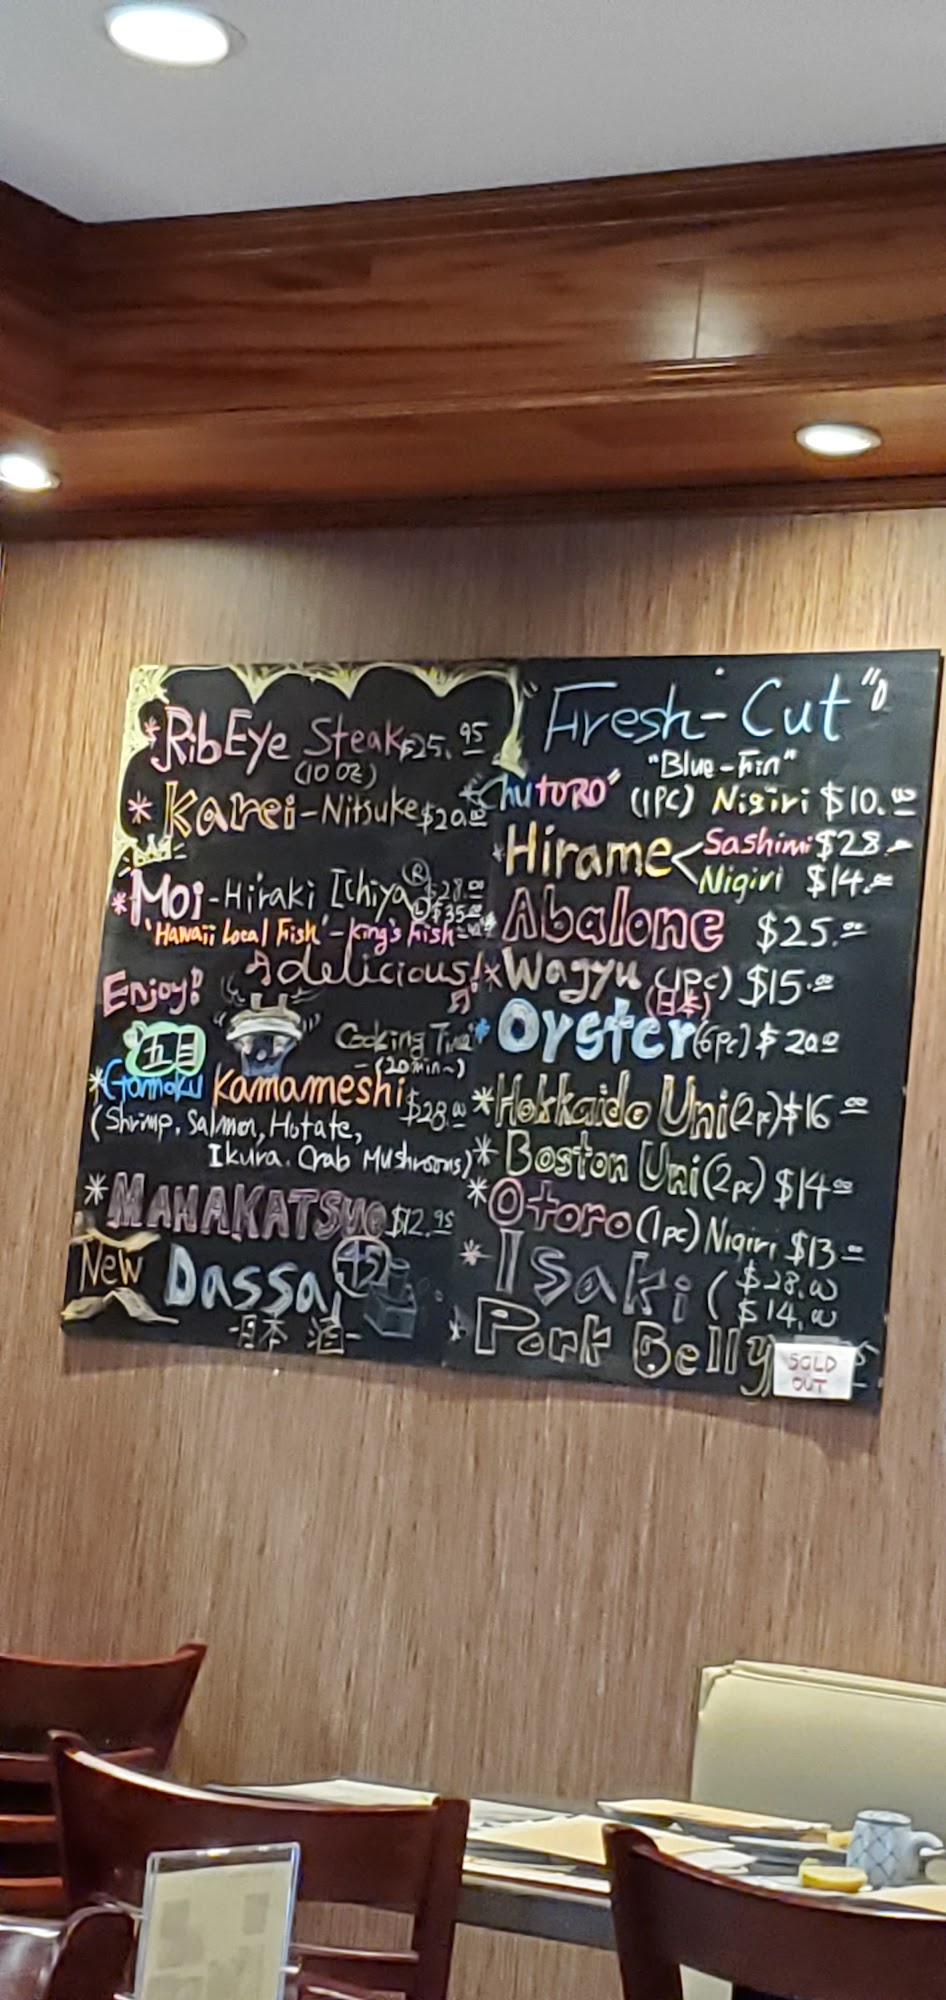 * RibEye Steak $25.95
(10 oz)
* Karei-Nitsuke $20.00
* Moi-Hiraki Ichiya (R) $28.00
(L) $35.00
'Hawaii Local Fish' - King's Fish
Enjoy! delicious!
五目
Cooking Time
(20min~)
* Gomoku Kamameshi $28.00
(Shrimp, Salmon, Hotate,
Ikura. Crab Mushrooms)
* MANAKATSUO $12.95
New Dassai 45
日本酒
"Fresh-Cut"
"Blue-Fin"
* "ChuTORO" (1PC) Nigiri $10.00
* Hirame < Sashimi $28.-
Nigiri $14.00
* Abalone $25.00
* Wagyu (1pc) $15.00
(日本)
* Oyster (6pc) $20.00
* Hokkaido Uni (2pc) $16.00
* Boston Uni (2pc) $14.00
* Otoro (1pc) Nigiri $13.00
* Isaki ( $28.00
$14.00
* Pork Belly
SOLD
OUT